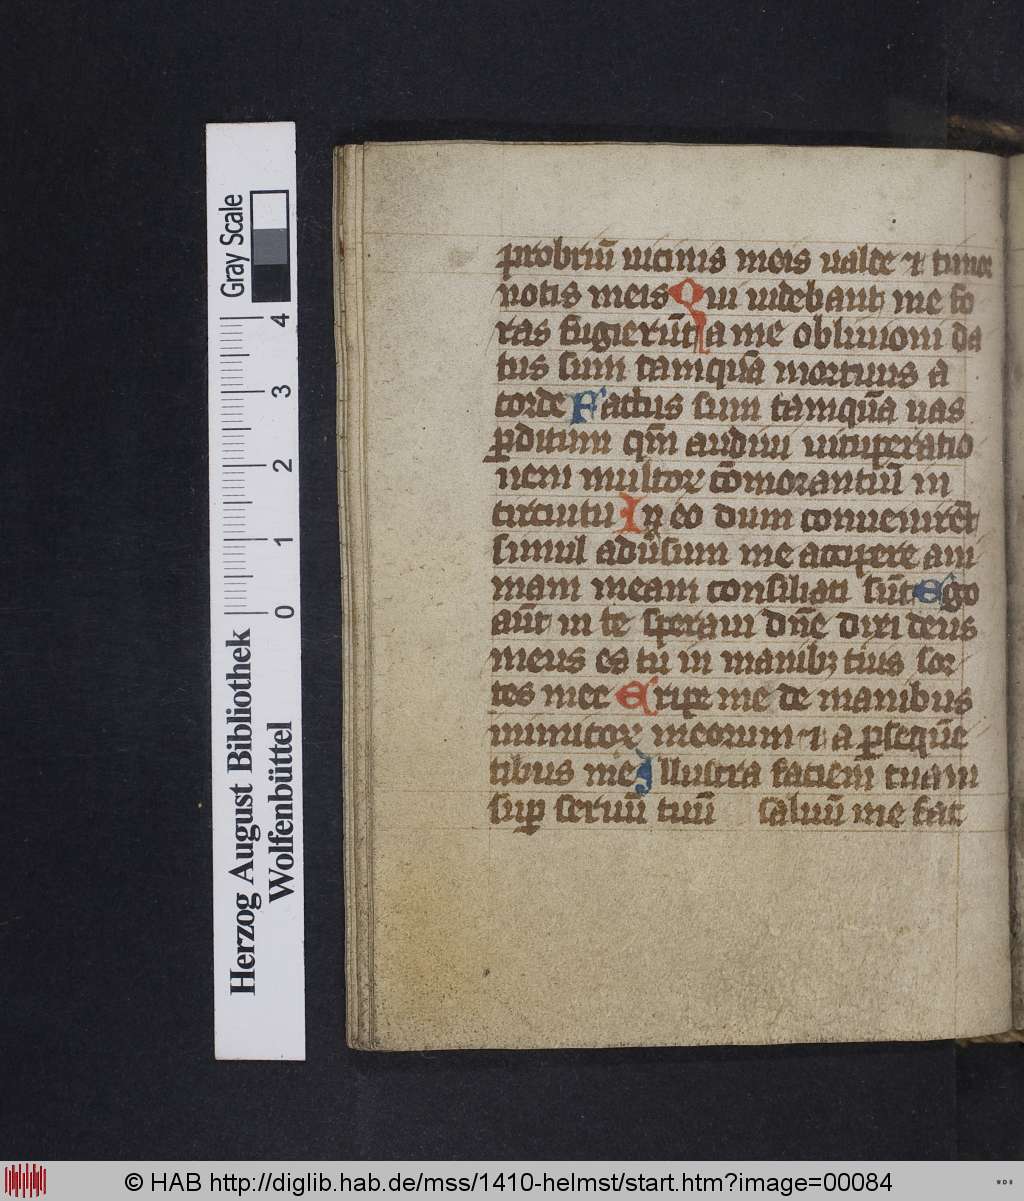 probriū uicinis meis ualde et timor
notis meis Qui uidebant me fo
ras fugierūt a me obliuioni da
tus sum tamquā mortuus a
corde Factus sum tamquā uas
ꝑditum qm̄ audiui uituꝑatio
nem multoꝝ cōmorantiū in
circuitu In eo dum conuenirēt
simul adūsum me accipere ani
mam meam consiliati sūt Ego
aūt in te speraui dn̄e dixi deus
meus es tu in manibꝫ tuis sor
tes mee Eripe me de manibus
inimicoꝝ meorum et a ꝑsequē
tibus me Illustra faciem tuam
suꝑ seruū tuū saluū me fac
Gray Scale
4
3
2
1
0
Herzog August Bibliothek
Wolfenbüttel
© HAB http://diglib.hab.de/mss/1410-helmst/start.htm?image=00084
WDB